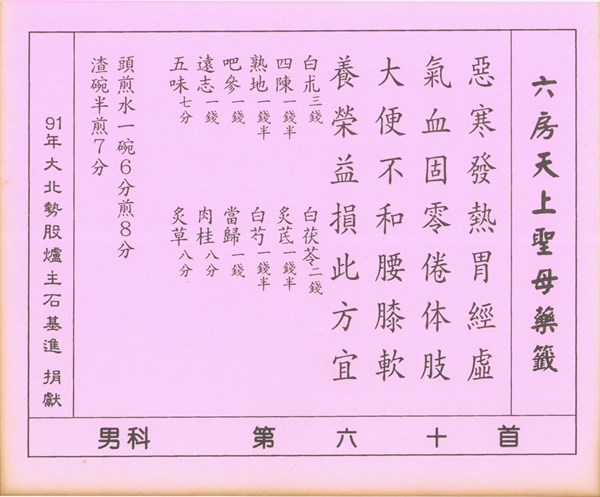 六房天上聖母藥籤
惡寒發熱胃經虛
氣血固零倦体肢
大便不和腰膝軟
養榮益損此方宜
白朮三錢 白茯苓二錢
四陳一錢半 炙芪一錢半
熟地一錢半 白芍一錢半
吧參一錢 當歸一錢
遠志一錢 肉桂八分
五味七分 炙草八分
頭煎水一碗6分煎8分
渣碗半煎7分
91年大北勢股爐主石基進 捐獻
男科 第六十首